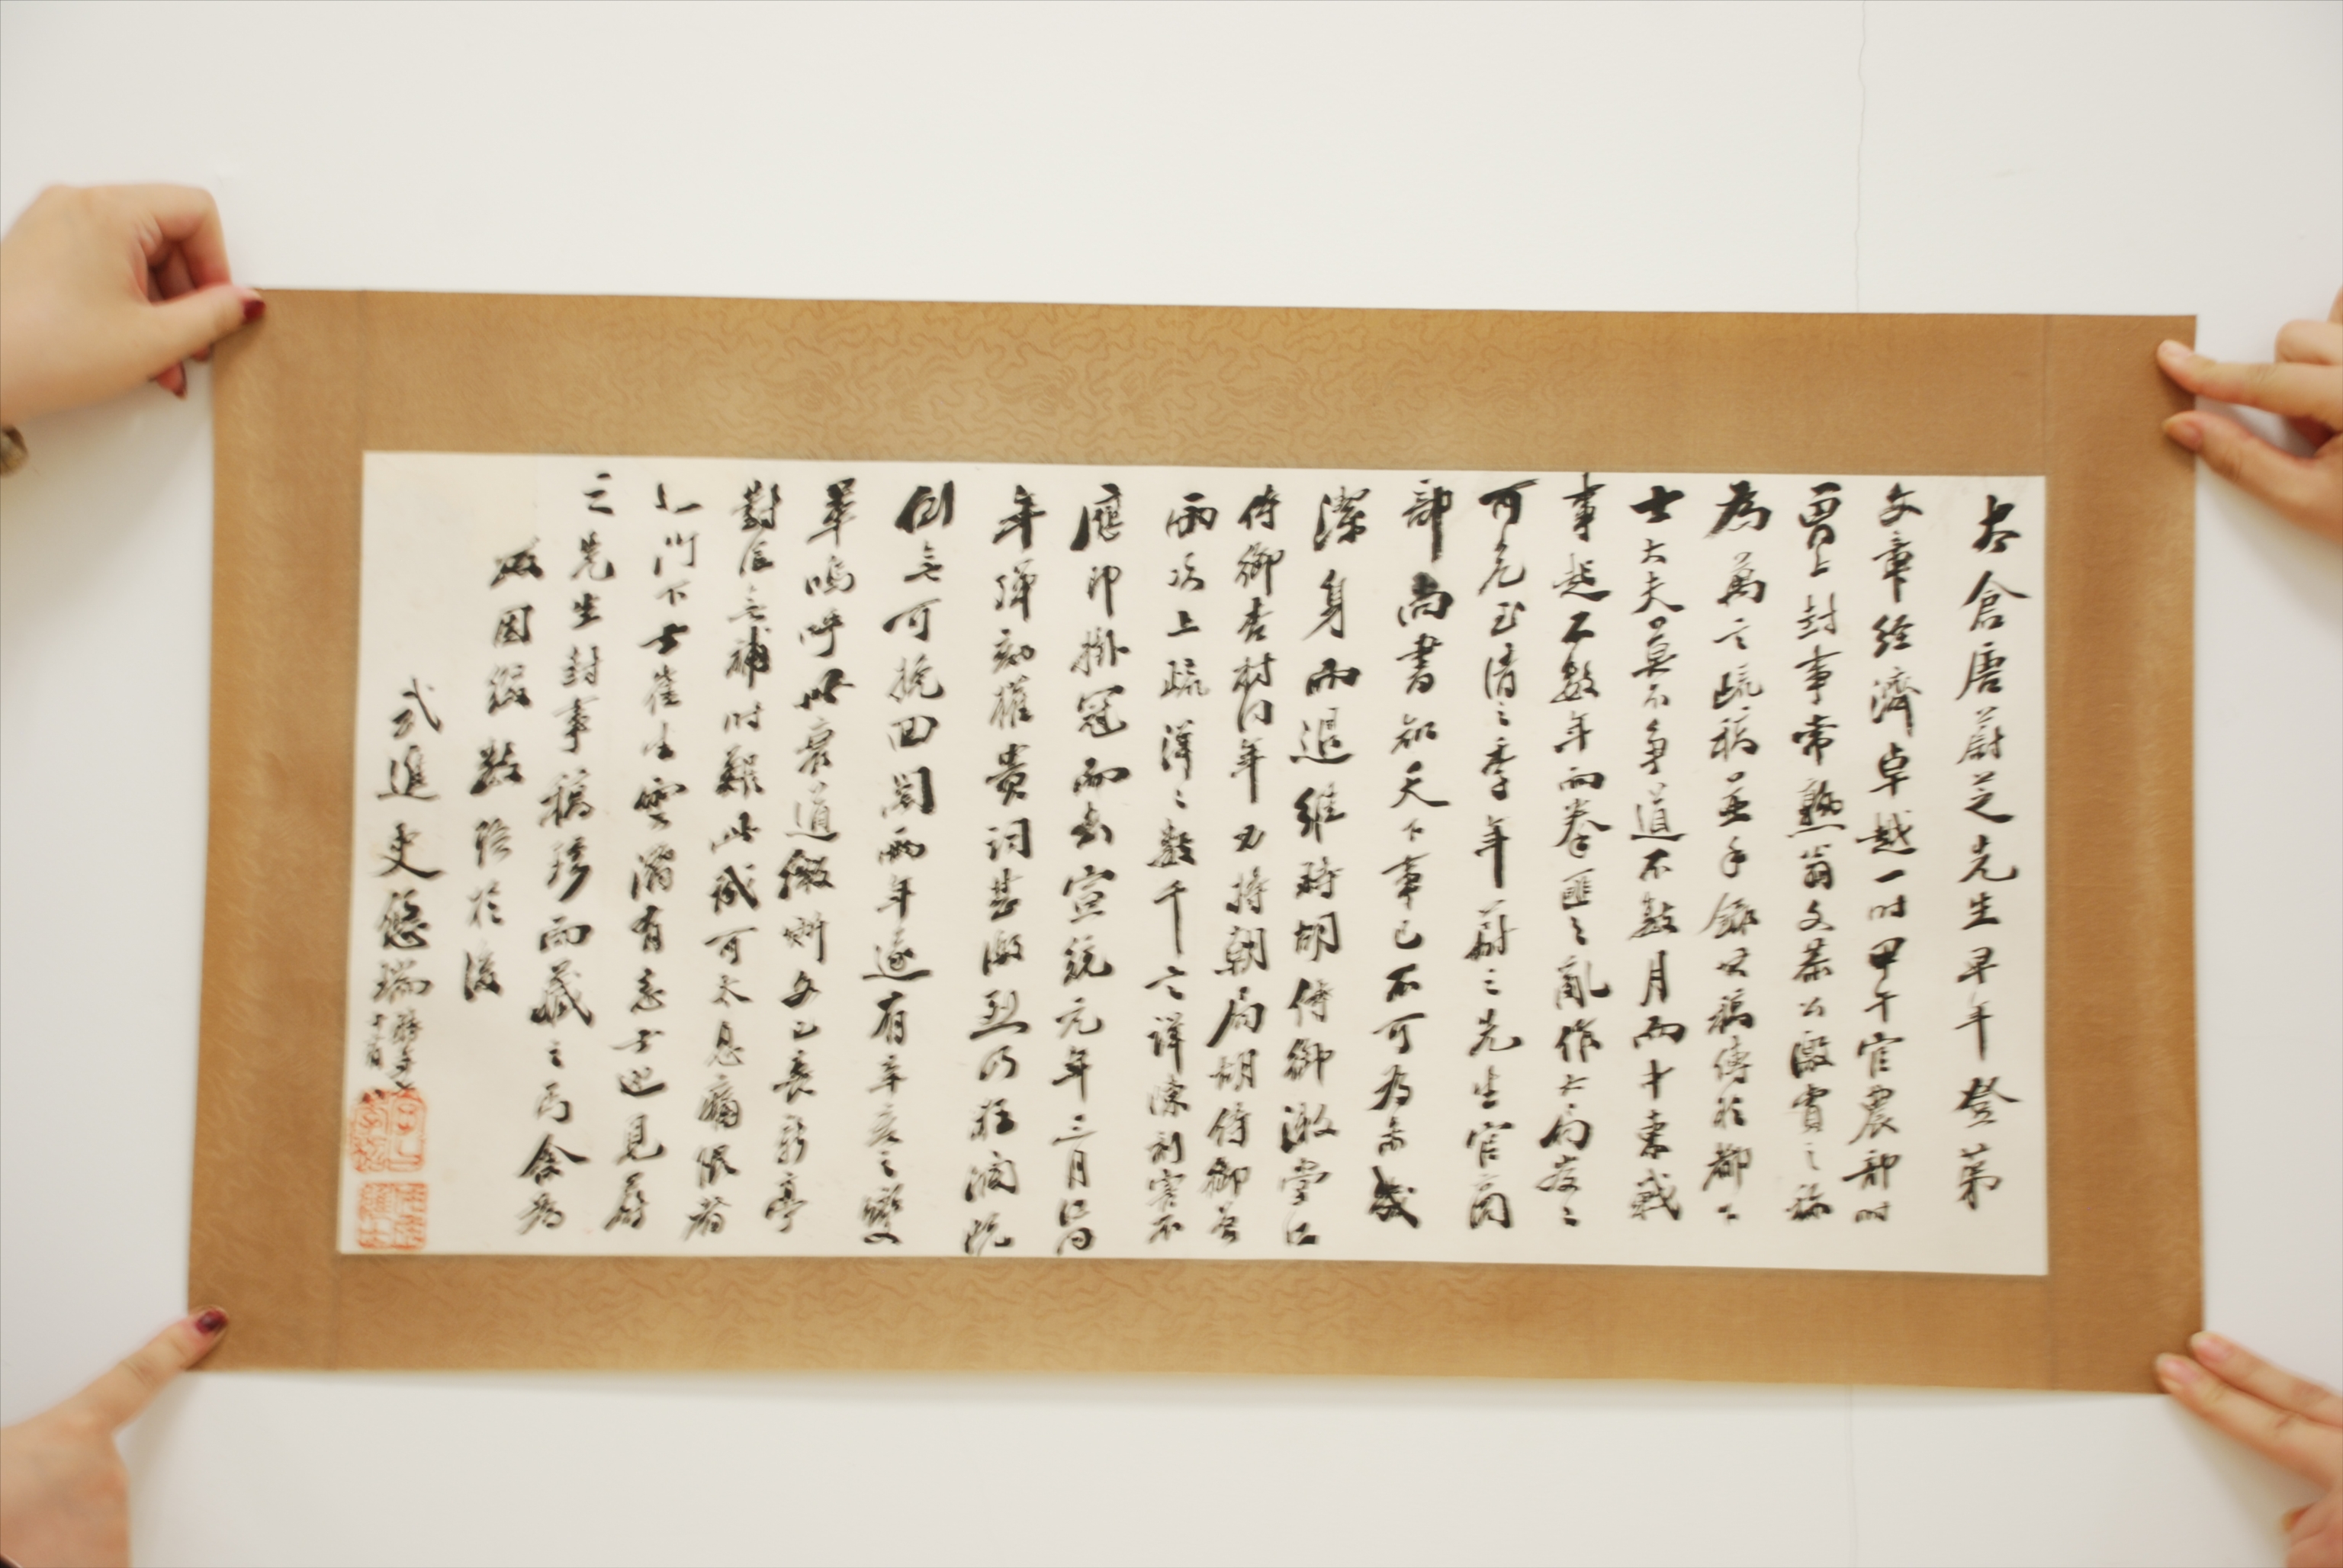 太倉唐蔚芝先生早年登第
文章經濟卓越一时甲午官農部时
曾上封事常熟翁文恭公激賞之稱
為萬言疏稿並手錄其稿傳於都下
士大夫莫不争道不數月而中東戰
事起不數年而拳匪之亂作大局岌岌
可危至清之季年蔚之先生官商
部尚書知天下事已不可為亦幾
潔身而退維時胡侍御漱堂江
侍御杏村同年力持朝局胡侍御曾
兩次上疏洋洋數千言詳陳利害不
應即掛冠而去宣統元年三月江
年彈劾權貴詞甚激烈乃狂瀾既
倒無可挽回閱兩年遂有辛亥之變
革嗚呼以衰道微斯文已喪新亭
對泣無補时艱此誠可太息痛恨者
也門下士崔生雲潛有志士也見蔚
之先生封事稿珍而藏之而令為
跋因綴數語於後
武進史悠瑞時年